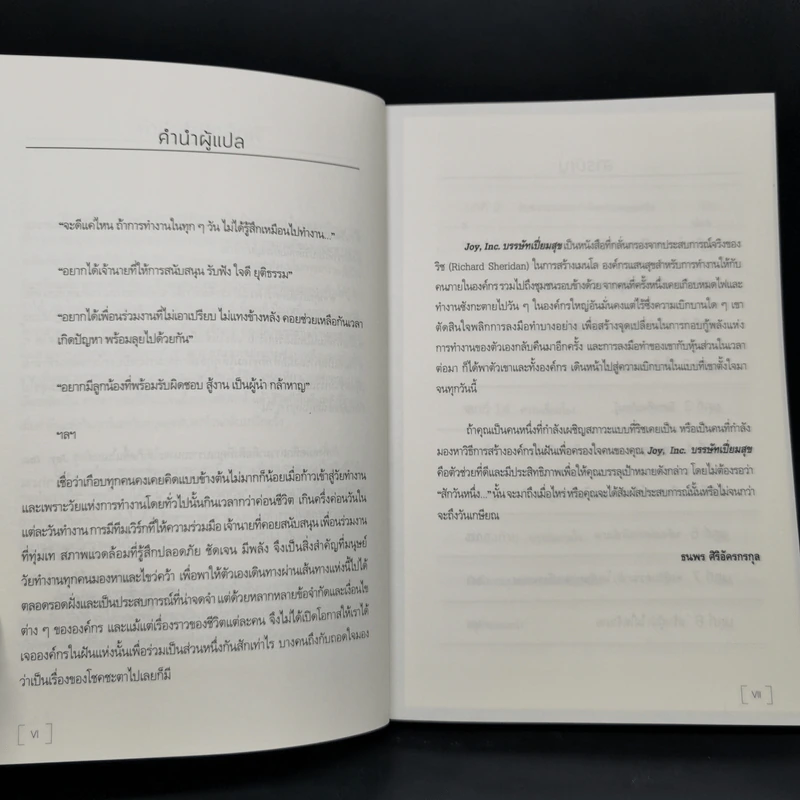 คำนำผู้แปล
“จะดีแค่ไหน ถ้าการทำงานในทุก ๆ วัน ไม่ได้รู้สึกเหมือนไปทำงาน...”
“อยากได้เจ้านายที่ให้การสนับสนุน รับฟัง ใจดี ยุติธรรม”
“อยากได้เพื่อนร่วมงานที่ไม่เอาเปรียบ ไม่แทงข้างหลัง คอยช่วยเหลือกันเวลา
เกิดปัญหา พร้อมลุยไปด้วยกัน”
“อยากมีลูกน้องที่พร้อมรับผิดชอบ สู้งาน เป็นผู้นำ กล้าหาญ”
ฯลฯ
เชื่อว่าเกือบทุกคนคงเคยคิดแบบข้างต้นไม่มากก็น้อยเมื่อก้าวเข้าสู่วัยทำงาน
และเพราะวัยแห่งการทำงานโดยทั่วไปนั้นกินเวลากว่าค่อนชีวิต เกินครึ่งค่อนวันใน
แต่ละวันทำงาน การมีทีมเวิร์กที่ให้ความร่วมมือ เจ้านายที่คอยสนับสนุน เพื่อนร่วมงาน
ที่ทุ่มเท สภาพแวดล้อมที่รู้สึกปลอดภัย ชัดเจน มีพลัง จึงเป็นสิ่งสำคัญที่มนุษย์
วัยทำงานทุกคนมองหาและไขว่คว้า เพื่อพาให้ตัวเองเดินทางผ่านเส้นทางแห่งนี้ไปได้
ตลอดรอดฝั่งและเป็นประสบการณ์ที่น่าจดจำ แต่ด้วยหลากหลายข้อจำกัดและเงื่อนไข
ต่าง ๆ ขององค์กร และแม้แต่เรื่องราวของชีวิตแต่ละคน จึงไม่ได้เปิดโอกาสให้เราได้
เจอองค์กรในฝันแห่งนั้นเพื่อร่วมเป็นส่วนหนึ่งกันสักเท่าไร บางคนถึงกับถอดใจมอง
ว่าเป็นเรื่องของโชคชะตาไปเลยก็มี
VI
Joy, Inc. บรรษัทเปี่ยมสุข เป็นหนังสือที่กลั่นกรองจากประสบการณ์จริงของ
ริช (Richard Sheridan) ในการสร้างเมนโล องค์กรแสนสุขสำหรับการทำงานให้กับ
คนภายในองค์กร รวมไปถึงชุมชนรอบข้างด้วย จากคนที่ครั้งหนึ่งเคยเกือบหมดไฟและ
ทำงานซังกะตายไปวัน ๆ ในองค์กรใหญ่อันมั่นคงแต่ไร้ซึ่งความเบิกบานใด ๆ เขา
ตัดสินใจพลิกการลงมือทำบางอย่าง เพื่อสร้างจุดเปลี่ยนในการกอบกู้พลังแห่ง
การทำงานของตัวเองกลับคืนมาอีกครั้ง และการลงมือทำของเขากับหุ้นส่วนในเวลา
ต่อมา ก็ได้พาตัวเขาและทั้งองค์กร เดินหน้าไปสู่ความเบิกบานในแบบที่เขาตั้งใจมา
จนทุกวันนี้
ถ้าคุณเป็นคนหนึ่งที่กำลังเผชิญสภาวะแบบที่ริชเคยเป็น หรือเป็นคนที่กำลัง
มองหาวิธีการสร้างองค์กรในฝันเพื่อครองใจคนของคุณ Joy, Inc. บรรษัทเปี่ยมสุข
คือตัวช่วยที่ดีและมีประสิทธิภาพเพื่อให้คุณบรรลุเป้าหมายดังกล่าว โดยไม่ต้องรอว่า
“สักวันหนึ่ง...” นั้น จะมาถึงเมื่อไหร่ หรือคุณจะได้สัมผัสประสบการณ์นั้นหรือไม่จนกว่า
จะถึงวันเกษียณ
ธนพร ศิริอัครกรกุล
VII